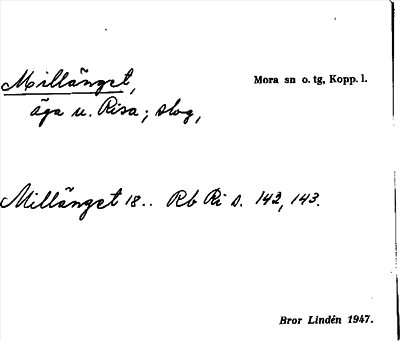 Millänget, Mora sn o. tg, Kopp. l.
äga u. Risa; slog,
Millänget 18.. Rb Ri s. 142, 143.
Bror Lindén 1947.